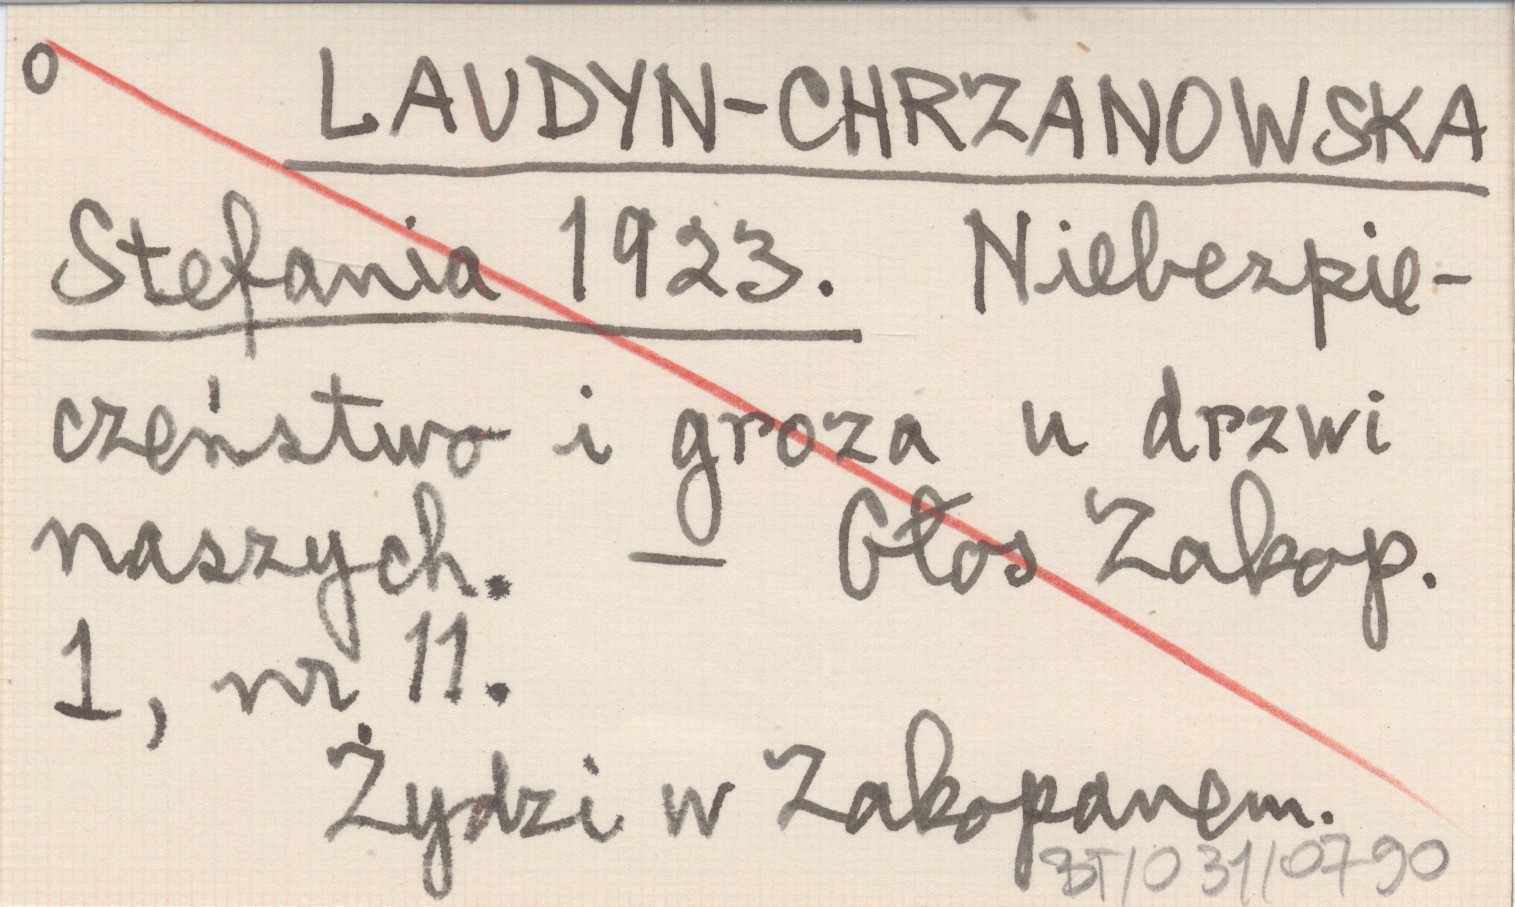 o LAUDYN-CHRZANOWSKA
Stefania 1923. Niebezpie-
czeństwo i groza u drzwi
naszych. — Głos Zakop.
1, nr 11.
Żydzi w Zakopanem.
BT/031/0790